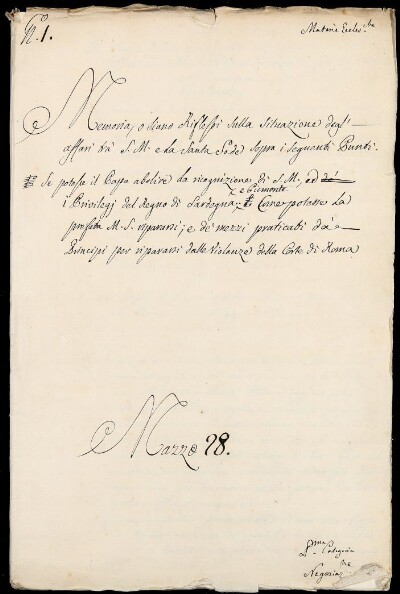 N.º 1.
Materie Eccles.che
Memoria, o siano Riflessi sulla Situazione degl'
affari trà S. M. e la Santa Sede sopra i seguenti Punti.
Se potesse il Pappa abolire la ricognizione di S. M., ed
i Privilegj del Regno di Sardegna, e Piemonte; Come potesse la
prefata M. S. ripararsi; e de' mezzi praticati dà
Principi per ripararsi dalle Violenze della Corte di Roma
Marzo 28.
p.ma Categoria
Negoziaz.ne